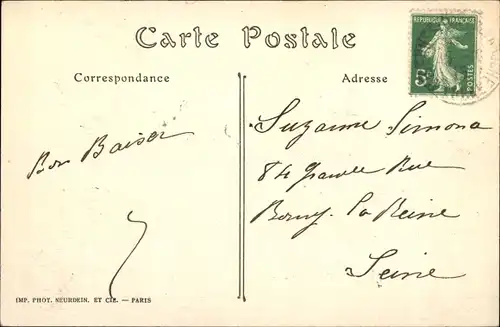 Carte Postale
Correspondance
Adresse
REPUBLIQUE FRANÇAISE
5c
POSTES
Bon Baiser
Suzanne Simona
84 Grande Rue
Bourg la Reine
Seine
IMP. PHOT. NEURDEIN. ET CIE. — PARIS